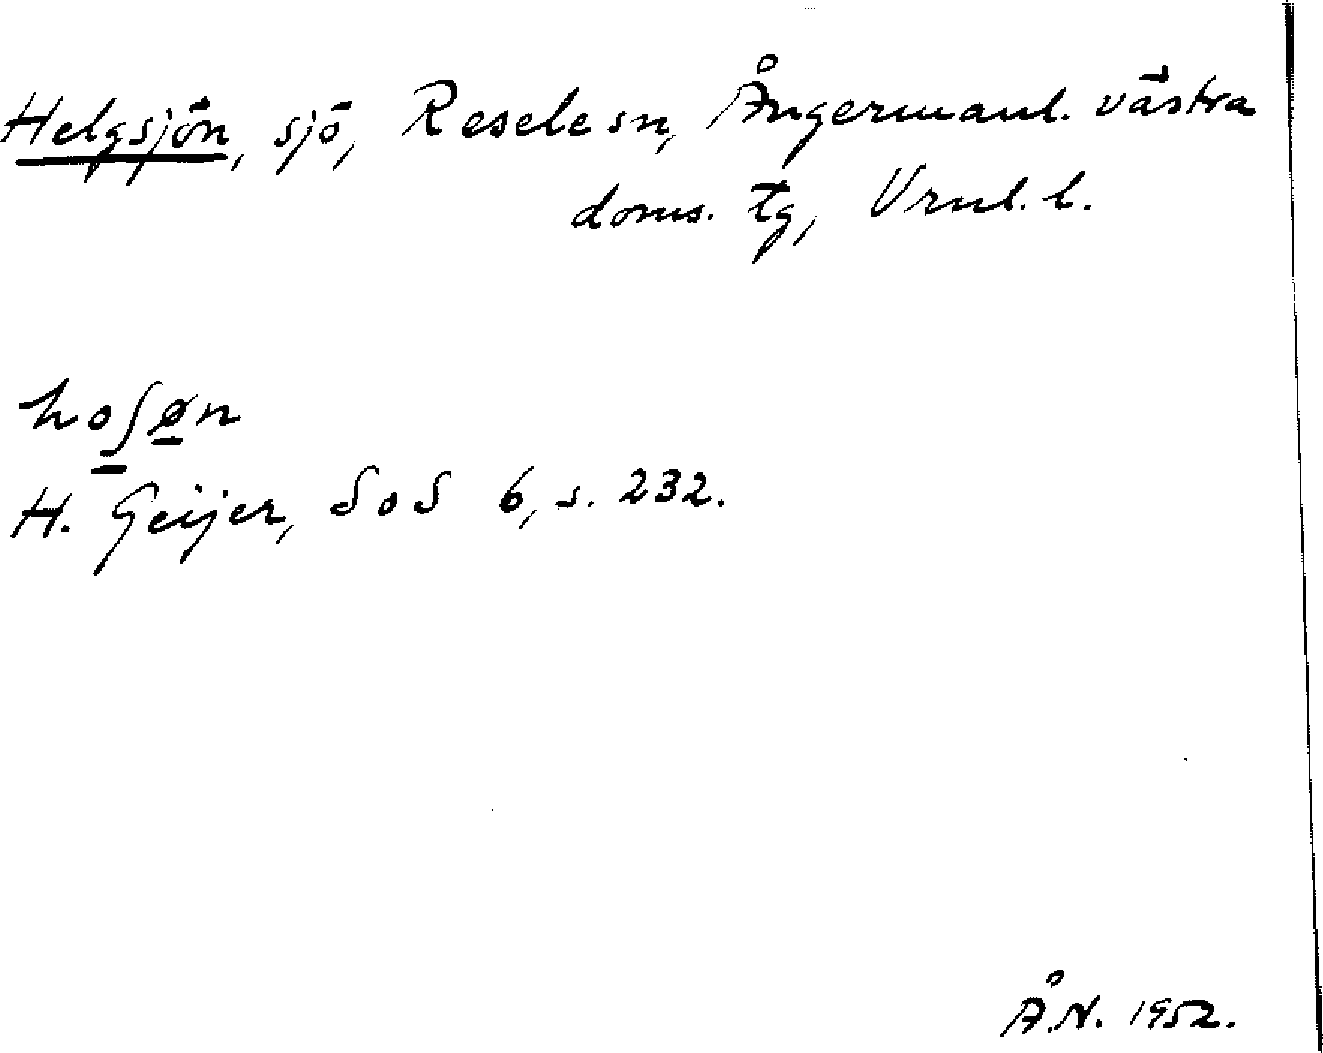 Helgsjön, sjö, Resele sn, Ångermanl. västra
doms. tg, Vrnl. l.
hoʃøn
H. Geijer, SoS 6, s. 232.
Å.N. 1952.